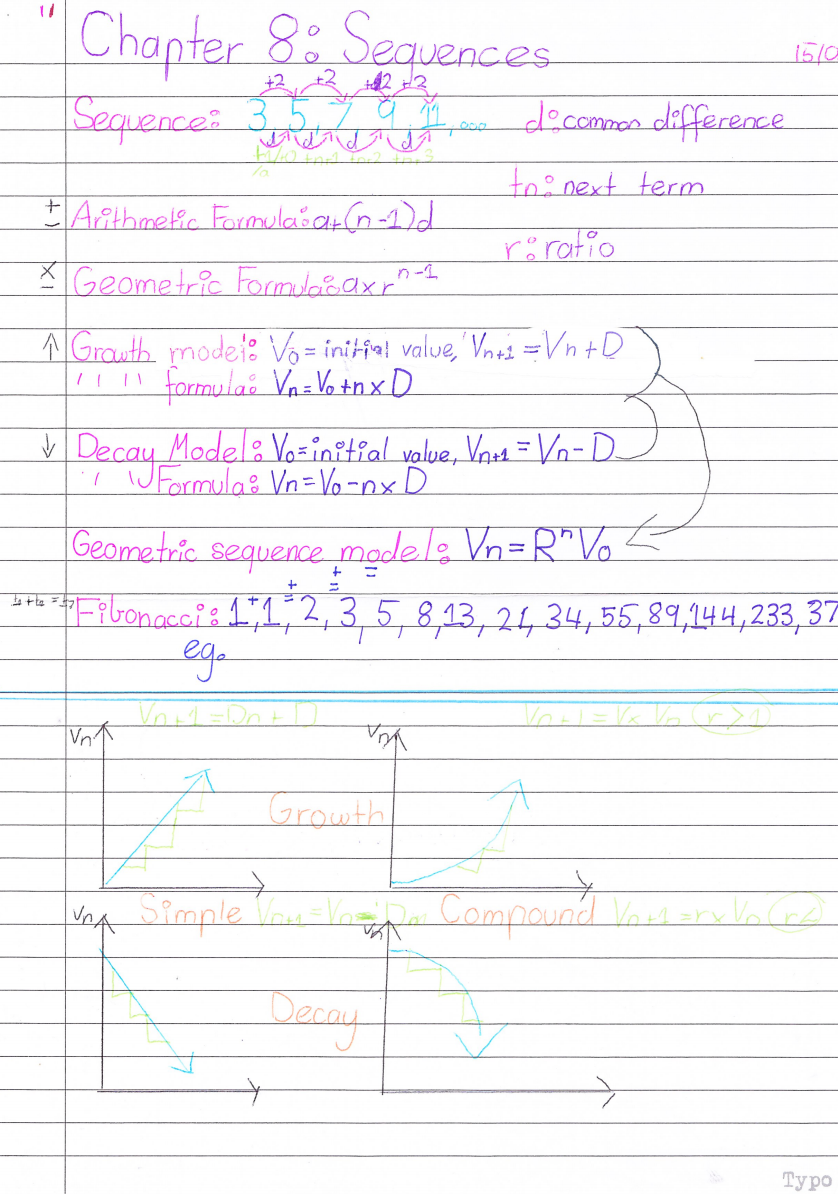 11
Chapter 8: Sequences
15/0
+2 +2 +2 +2
Sequence: 3, 5, 7, 9, 11, ... d: common difference
d d d d
tn: next term
± Arithmetic Formula: a+(n-1)d
r: ratio
× Geometric Formula: a×r^n-1
↑ Growth model: V0 = initial value, Vn+1 = Vn + D
" " formula: Vn = V0 + n × D
↓ Decay Model: V0 = initial value, Vn+1 = Vn - D
" " Formula: Vn = V0 - n × D
Geometric sequence model: Vn = R^n V0
+ =
+ =
t1+t2 = Fibonacci: 1, 1, 2, 3, 5, 8, 13, 21, 34, 55, 89, 144, 233, 37
eg.
Vn+1 = Dn + D
Vn+1 = V× Vn r>1
Vn Vn
Growth
Vn Simple Vn+1 = Vn - D Compound Vn+1 = r× Vn r<
Vn
Decay
Typo